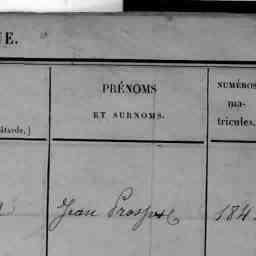 UE.
PRÉNOMS
ET SURNOMS.
NUMÉROS
ma-
tricules.
âtarde,)
Jean Prosper
184